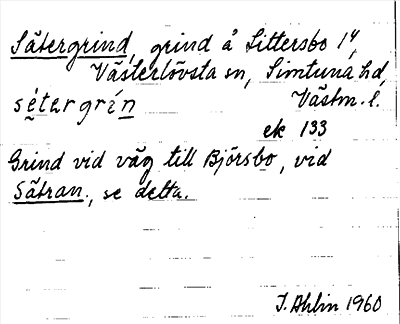 Sätergrind, grind å Sittersbo 1⁴,
Västerlövsta sn, Simtuna hd,
sétergrín Västm. l.
ek 133
Grind vid väg till Björsbo, vid
Sätran, se detta.
J. Ahlin 1960